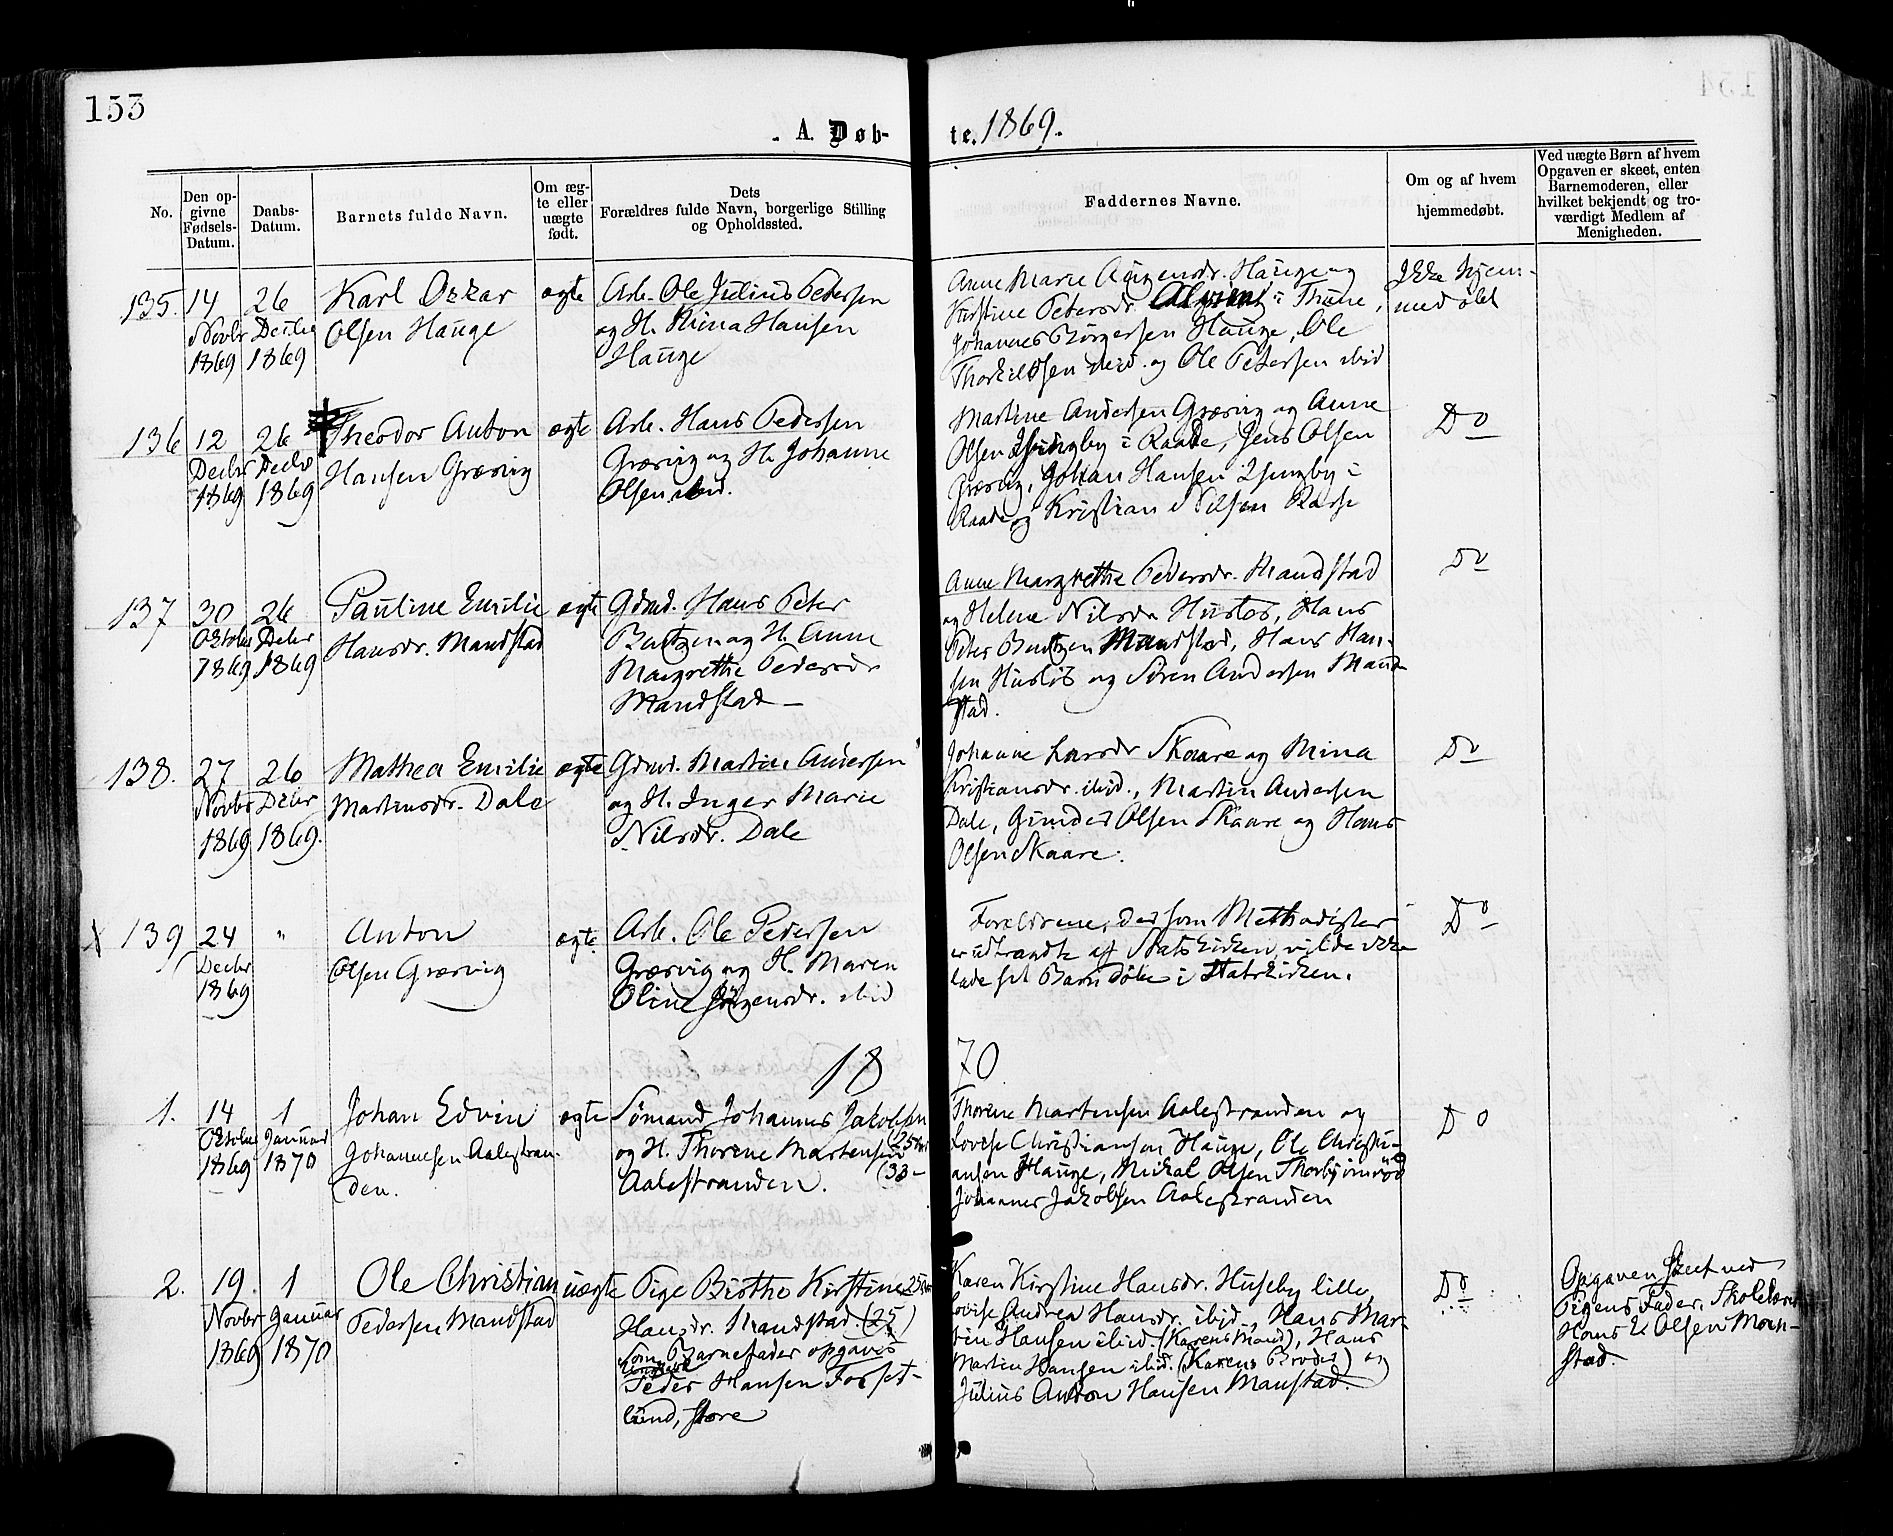 153
A. Døb-
te. 1869.
No.
Den op-
givne
Fødsels-
Datum.
Daabs-
Datum.
Barnets fulde Navn.
Om æg-
te eller
uægte
født.
Dets
Forældres fulde Navn, borgerlige Stilling
og Opholdssted.
Faddernes Navne.
Om og af hvem
hjemmedøbt.
Ved uægte Børn af hvem
Opgaven er skeet, enten
Barnemoderen, eller
hvilket bekjendt og tro-
værdigt Medlem af
Menigheden.
135.
14
Novbr
1869
26
Decbr
1869
Karl Oskar
Olsen Hauge
ægte
Arb. Ole Julius Petersen
og H. Mina Hansen
Hauge
Anne Marie Hauge og
Kirstine Petersdr. i Thune,
Johannes Børgersen Hauge, Ole
Thorkildsen ibid. og Ole Petersen ibid
Ikke hjem-
medøbt
136
12
Decbr
1869
26
Decbr
1869
Theodor Anton
Hansen Græsvig
ægte
Arb. Hans Pedersen
Græsvig og H. Johanne
Olsen ibid.
Martine Andersen Græsvig og Anne
Olsen i Raade, Jens Olsen
Græsvig, Johan Hansen i
Raade og Kristian Nilsen
Do
137
30
Oktober
1869
26
Decbr
1869
Pauline Emilie
Hansdr. Mandstad
ægte
Gdmd. Hans Peter
Bentzen og H. Anne
Margrethe Pedersdr
Mandstad
Anne Margrethe Pedersdr. Mandstad
og Helene Nilsdr Husløs, Hans
Peter Bentzen Mandstad, Hans Han-
sen Husløs og Søren Andersen Mand-
stad.
Do
138.
27
Novbr
1869
26
Decbr
1869.
Mathea Emilie
Martinsdr. Dale
ægte
Gdmd. Martin Andersen
og H. Inger Marie
Nilsdr. Dale
Johanne Larsdr Skaare og Mina
Kristiansdr. ibid., Martin Andersen
Dale, Gunder Olsen Skaare og Hans
Olsen Skaare.
Do
X 139
24
Decbr
1869
"
Anton
Olsen Græsvig
ægte
Arb. Ole Pedersen
Græsvig og H. Maren
Oline Jørgensdr. ibid
Forældrene, der som Methodister
er udtraadte af Statskirken, vilde ikke
lade sit Barn døbe i Statskirken.
Do
18
70
1.
14
Oktober
1869
1
Januar
1870
Johan Edvin
Johannesen Aalestran-
den.
ægte
Sømand Johannes Jakobsen
(25
og H. Thorene Martensen
(33-
Aalestranden.
Thorene Martensen Aalestranden og
Lovise Christiansen Hauge, Ole Christi-
ansen Hauge, Mikal Olsen Thorbjørnrød
Johannes Jakobsen Aalestranden
Do
2.
19.
Novbr
1869
1
Januar
1870
Ole Christian
Pedersen Mandstad
uægte
Pige Birthe Kirstine
Hansdr. Mandstad. (25)
Som Barnefader opgaves
Peder Hansen Forset-
lund, store
Karen Kirstine Hansdr. Huseby lille,
Lovise Andrea Hansdr. ibid., Hans Mar-
tin Hansen ibid. (Karens Mand), Hans
Martin Hansen ibid. (Karens Broder) og
Julius Anton Hansen Manstad.
Do
Opgaven skeet ved
Pigens Fader, Skolelærer
Hans E. Olsen Man-
stad.